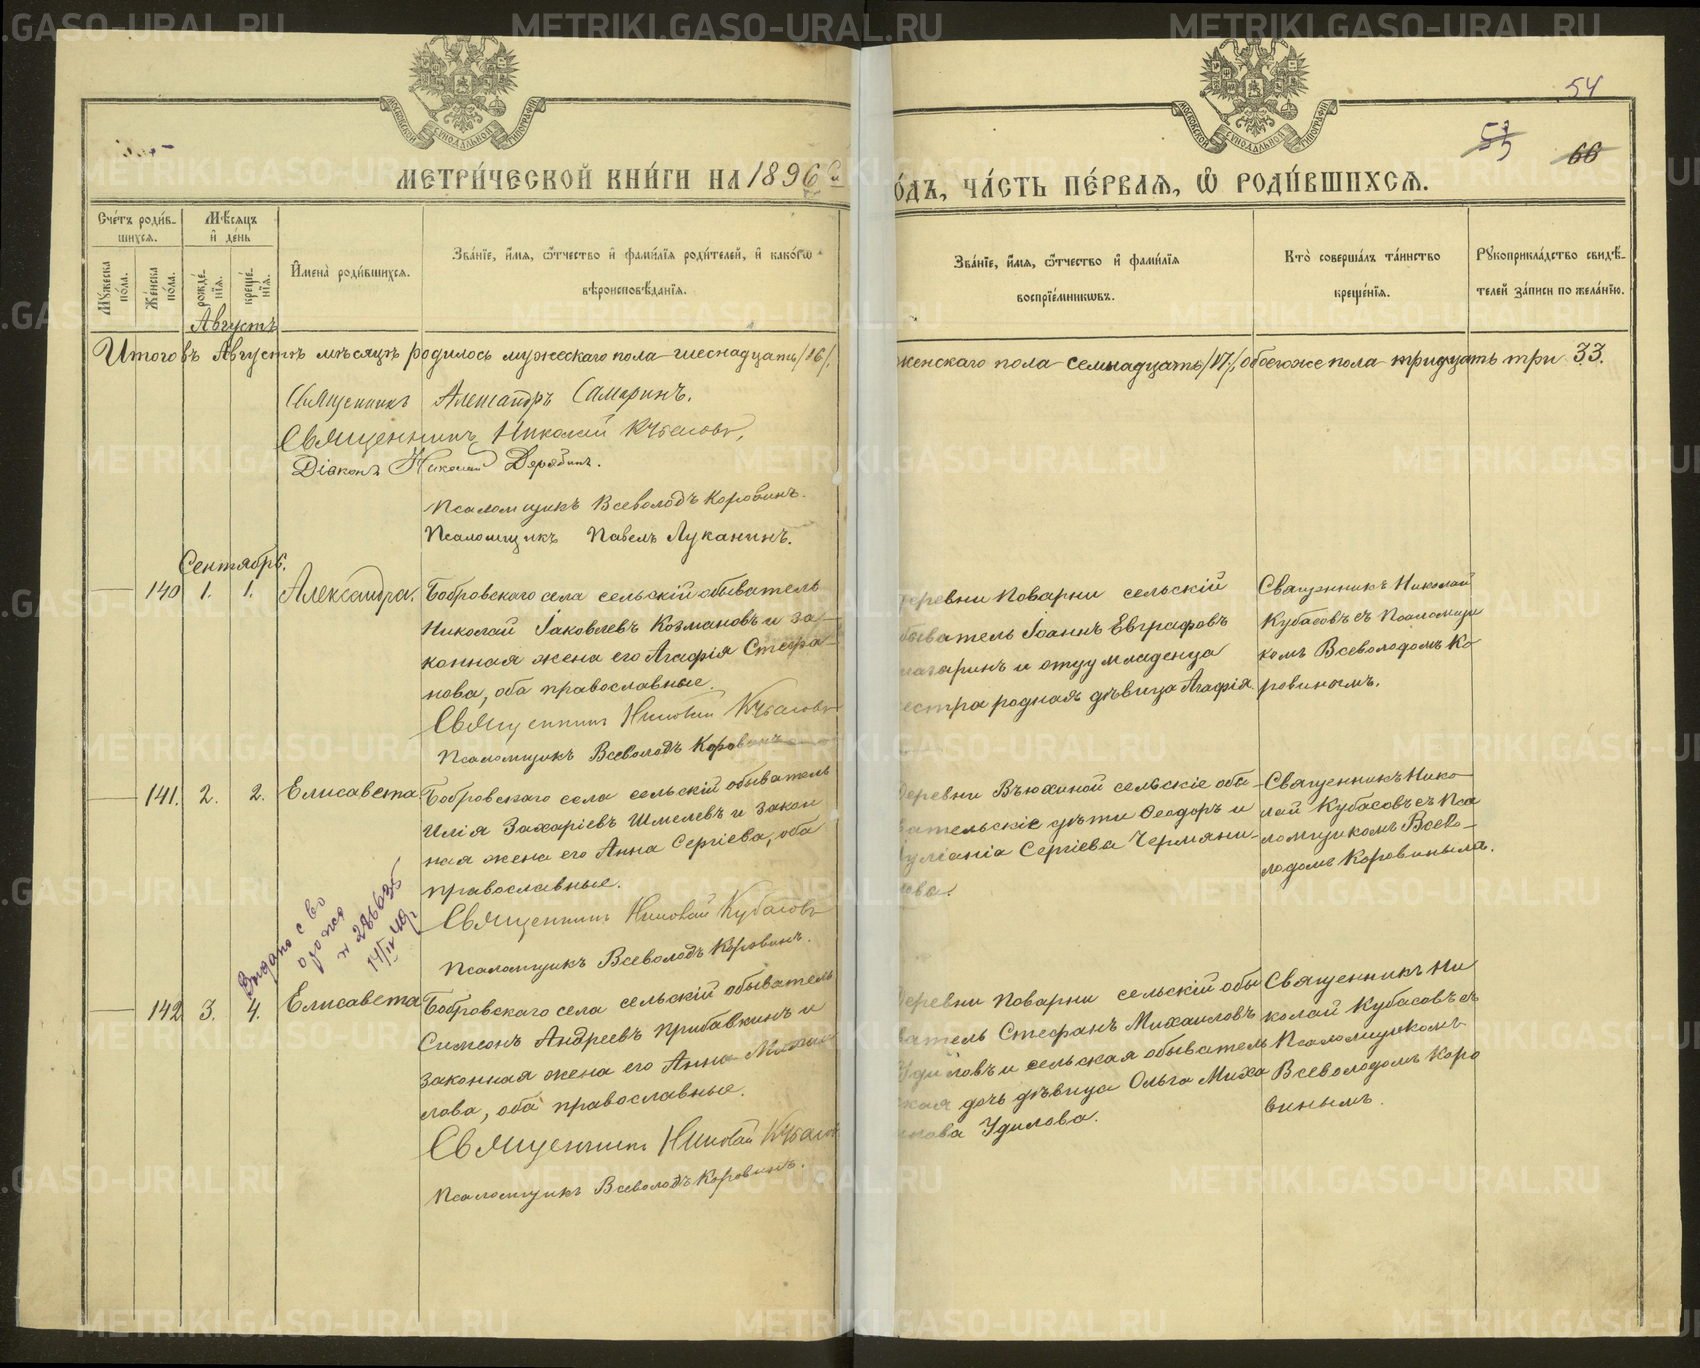 METRIKI.GASO-URAL.RU
54
53
66
МЕТРИ́ЧЕСКОЙ КНИ́ГИ НА 1896
О́ДЪ, ЧА́СТЬ ПЕ́РВАѦ, Ѡ҆ РОДИ́ВШИХСѦ.
Сче́тъ роди́в-
шихсѧ.
Мѣ́сѧцъ
и҆ де́нь
Мꙋ́жеска по́ла.
Же́нска по́ла.
рожде́нїѧ.
креще́нїѧ.
И҆мена̀ роди́вшихсѧ.
Зва́нїе, и҆́мѧ, ѻ҆́тчество и҆ фами́лїѧ роди́телей, и҆ како́гѡ
вѣроисповѣ́данїѧ.
Зва́нїе, и҆́мѧ, ѻ҆́тчество и҆ фами́лїѧ
воспрїе́мникѡвъ.
Кто̀ соверша́лъ та́инство
креще́нїѧ.
Рꙋкоприкла́дство свидѣ́-
телей за́писи по жела́нїю.
Августъ
Итого въ Августѣ мѣсяцѣ родилось мужескаго пола шеснадцать /16/,
женскаго пола семнадцать /17/, обоегоже пола тридцать три 33.
Священникъ Александръ Самаринъ.
Священникъ Николай Кубасовъ.
Діаконъ Николай Дерябинъ.
Псаломщикъ Всеволодъ Коровинъ.
Псаломщикъ Павелъ Луканинъ.
Сентябрь.
140 1. 1. Александра. Бобровскаго села сельскій обыватель
Николай Іаковлевъ Козмановъ и за-
конная жена его Агафія Стефа-
нова, оба православные.
Священникъ Николай Кубасовъ
Псаломщикъ Всеволодъ Коровинъ
деревни Поварни сельскій
обыватель Іоаннъ Евграфовъ
и отцу младенца
сестра родная дѣвица Агафія
Священникъ Николай
Кубасовъ съ Псаломщи
комъ Всеволодомъ Ко
ровинымъ.
141. 2. 2. Елисавета Бобровскаго села сельскій обыватель
Илія Захаріевъ Шмелевъ и закон
ная жена его Анна Сергіева, оба
православные.
Священникъ Николай Кубасовъ
Псаломщикъ Всеволодъ Коровинъ.
Деревни Вьюхиной сельскіе обы-
вательскіе дѣти Ѳеодоръ и
Іуліанія Сергіева Чермяни-
нова.
Священникъ Нико
лай Кубасовъ съ Пса
ломщикомъ Всево-
лодомъ Коровинымъ.
Выдано с во
н 286635
14/IV 49 г
142 3. 4. Елисавета Бобровскаго села сельскій обыватель
Симеонъ Андреевъ Прибавкинъ и
законная жена его Анна Михаи
лова, оба православные.
Священникъ Николай Кубасов
Псаломщикъ Всеволодъ Коровинъ.
Деревни Поварни сельскій обы
ватель Стефанъ Михаиловъ
Удиловъ и сельская обыватель
ская дочь дѣвица Ольга Миха
илова Удилова.
Священникъ Ни
колай Кубасовъ съ
Псаломщикомъ
Всеволодомъ Коро
винымъ.